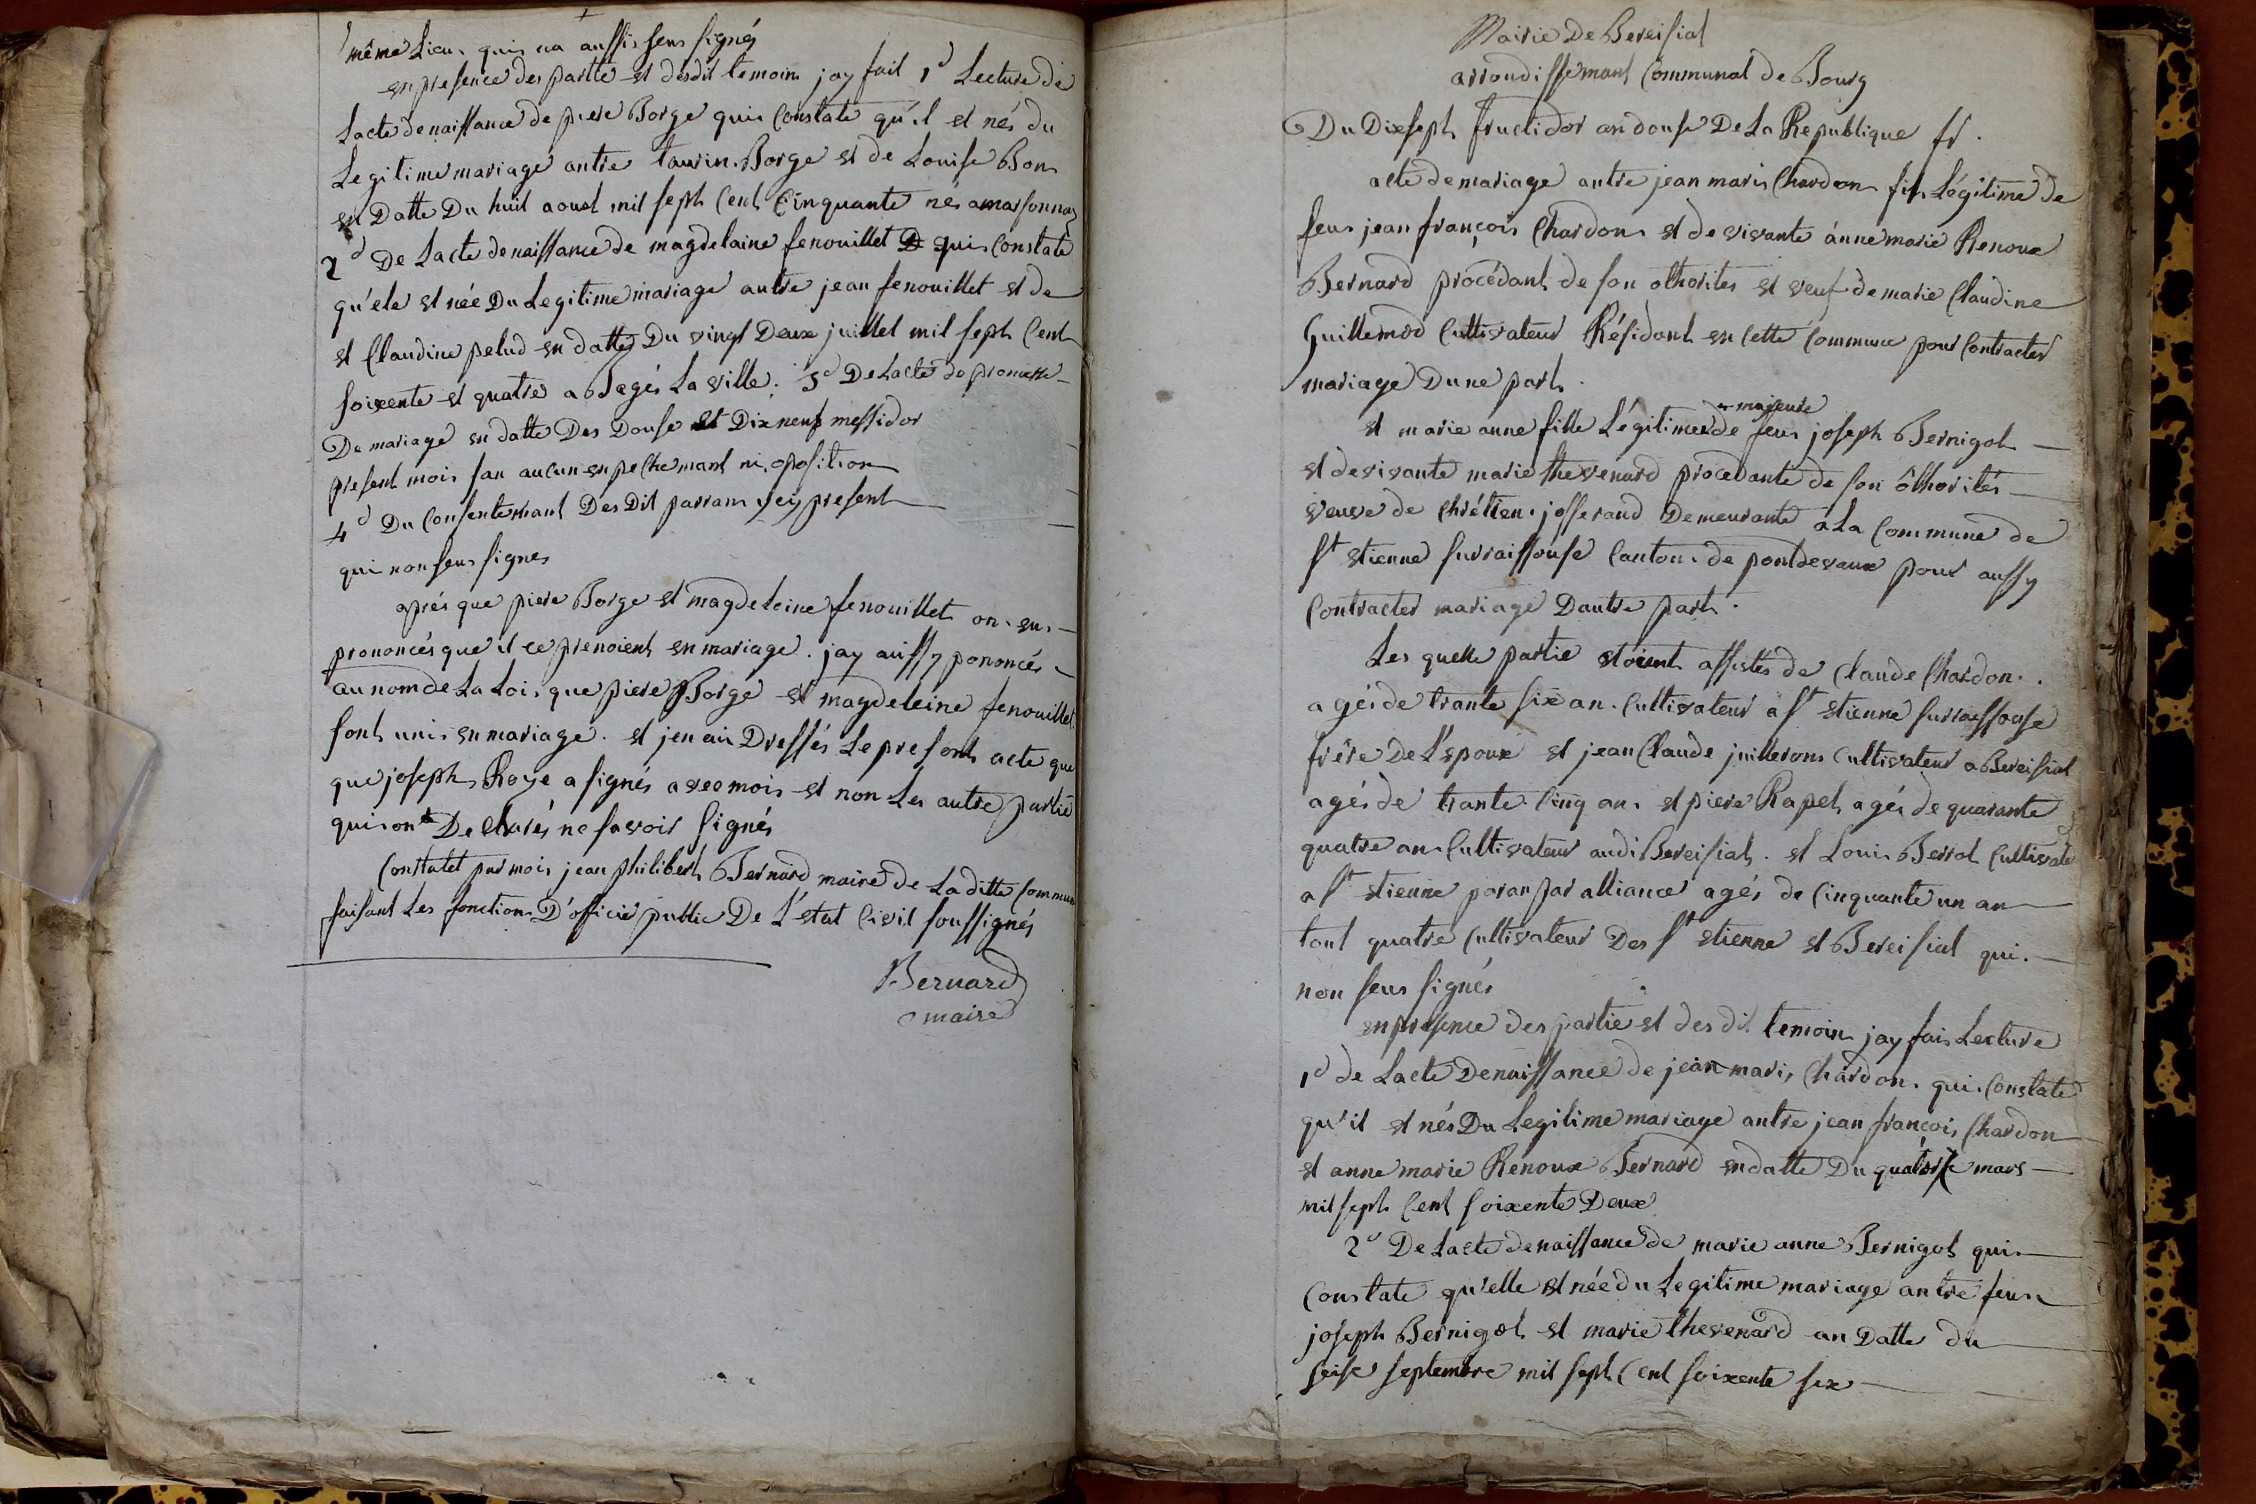 même Lieu. quis na aussis seus signés
en presence des partie et desdit temoins jay fait 1d Lecture de
Lacte de naissance de piere Borge quis Constate qu'il et nés du
Legitime mariage antre taurin. Borge et de Louise Bon
en Datte Du huit aoust mil sept Cent Cinquante nés a marsonnas
2d De Lacte de naissance de magdelaine fenouillet D quis Constate
qu'ele et née Du Legitime mariage antre jean fenouillet et de
et Claudine pelud en datte Du vingt Deux juillet mil sept Cent
soixente et quatre a Bagés La ville. 3d De Lacte de promesse
De mariage en datte Des Douse et Dix neuf messidor
present mois san aucun enpechemant ni oposition
4d Du Consentemant Des Dit parrans jci present
qui non seus signes
aprés que piere Borge et magdeleine fenouillet on. eu.
prononcés que il ce prenoient en mariage. jay aussy pononcés
au nom de La Loi. que piere Borge et magdeleine fenouillet
sont unis en mariage. et jen ais Dressés Le present acte que
que joseph Roye a signés avec mois et non Les autre partie
quis ont De Clarés ne savoir signés
Constatet par mois jean philibert Bernard maire de La ditte Commun
faisant Les fonction D'officié public De L'estat Civil soussignés
Bernard
maire
Mairie De Bereisiat
arroudissemant Communal de Bourg
Du Dixsept fructidor an douse De La Republique fr.
acte de mariage antre jean maris Chardon fis Légitime de
feus jean françois Chardon et de vivante anne marie Renoux
Bernard procédant de son othorités et veuf de marie Claudine
Guillemod Cultivateur Résidant en Cette Commune pour Contracter
mariage Dune part.
majeure
et marie anne fille Légitime de feus joseph Bernigot
et de vivante marie thevenard procedante de son ôthorités
veuve de Chrétien. josserand Demeurante a La Commune de
St etienne surraissouse Canton. de pontdevaux pour aussy
Contracter mariage Dautre part.
Les quelle partie etoient assistés de Claude Chardon.
agés de trante six an. Cultivateur a St etienne surraissouse
frére De L'epoux et jean Claude juillerons Cultivateur a Bereisiat
agés de trante Cinq an. et piere Rapet agés de quarante
quatre an Cultivateur audi Bereisiat. et Louis Berrot Cultivate
a St etienne paran par alliance agés de Cinquante un an
tout quatre Cultivateur Des St etienne et Bereisiat qui.
non seus signés
en presence des partie et des dit temoin jay fais Lecture
1d de Lacte De naissance de jean maris Chardon. qui. Constate
qu'il et nés Du Legitime mariage antre jean françois Chardon
et anne marie Renoux Bernard en datte Du quatorse mars
mil sept Cent soixente Deux
2d De Lacte de naissance de marie anne Bernigot quis
Constate qu'elle et née du Legitime mariage antre feus
joseph Bernigot et marie thevenard an Datte du
seise septembre mil sept Cent soixente six